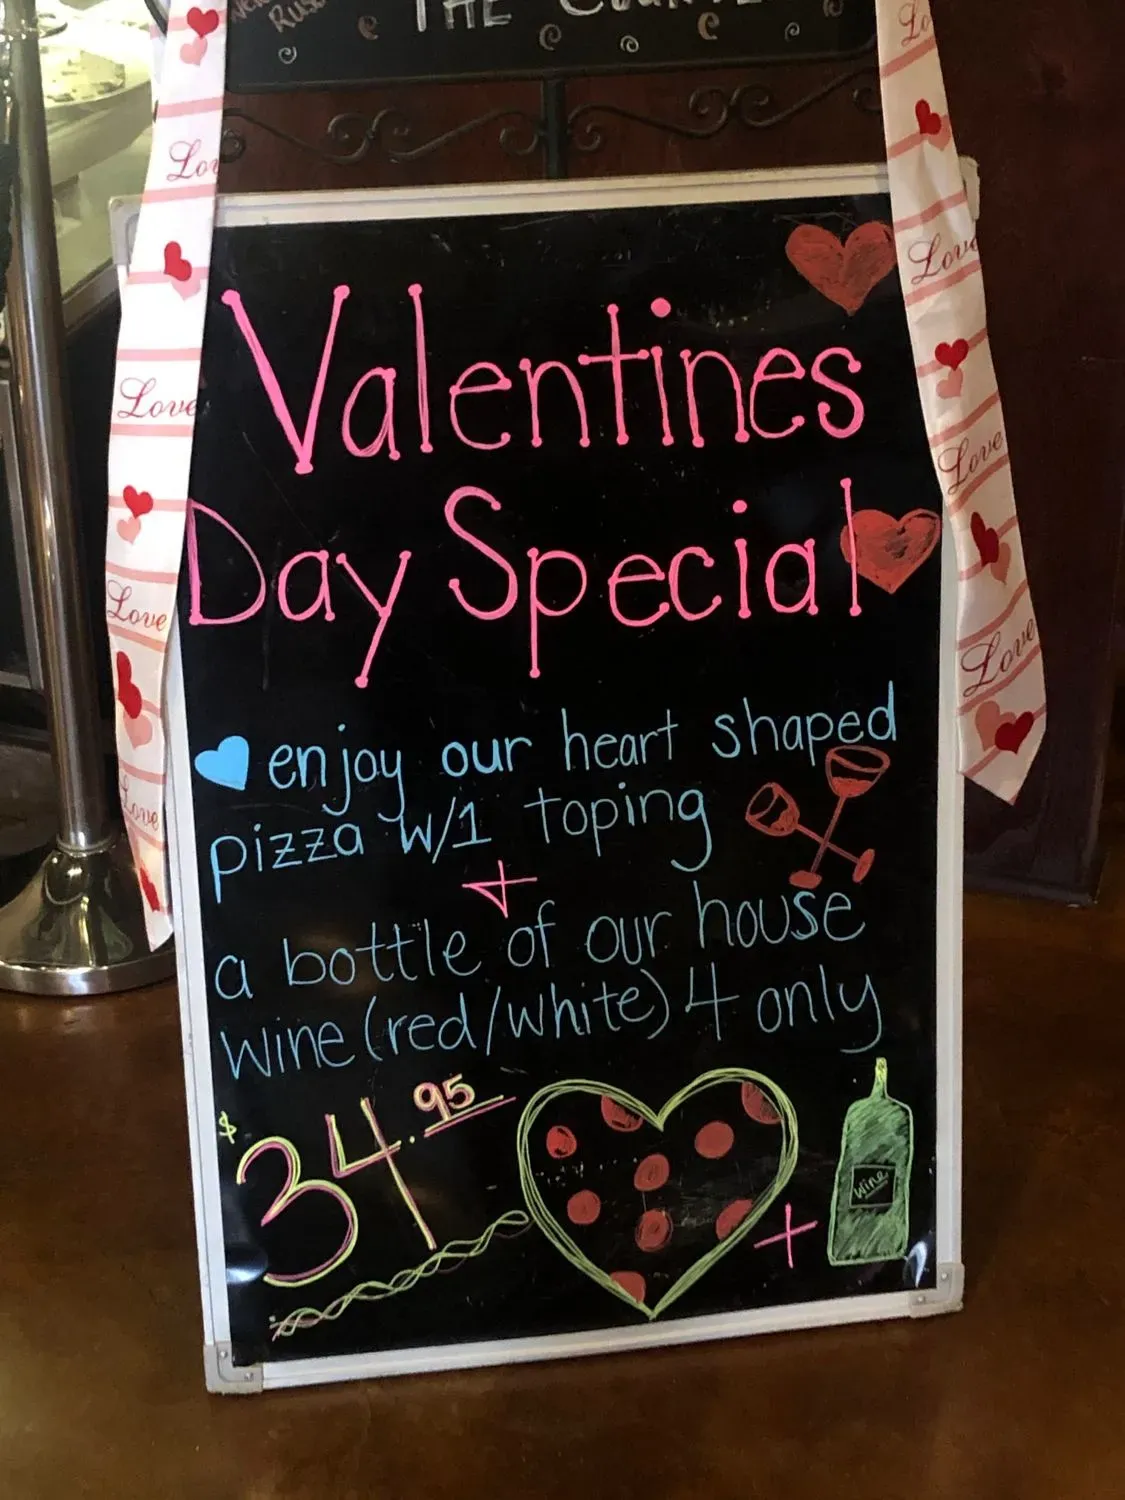 THE
Valentines
Day Special
enjoy our heart shaped
pizza w/1 toping
+
a bottle of our house
wine (red/white) 4 only
$34.95
+
wine
Love
Love
Love
Love
Love
Love
Love